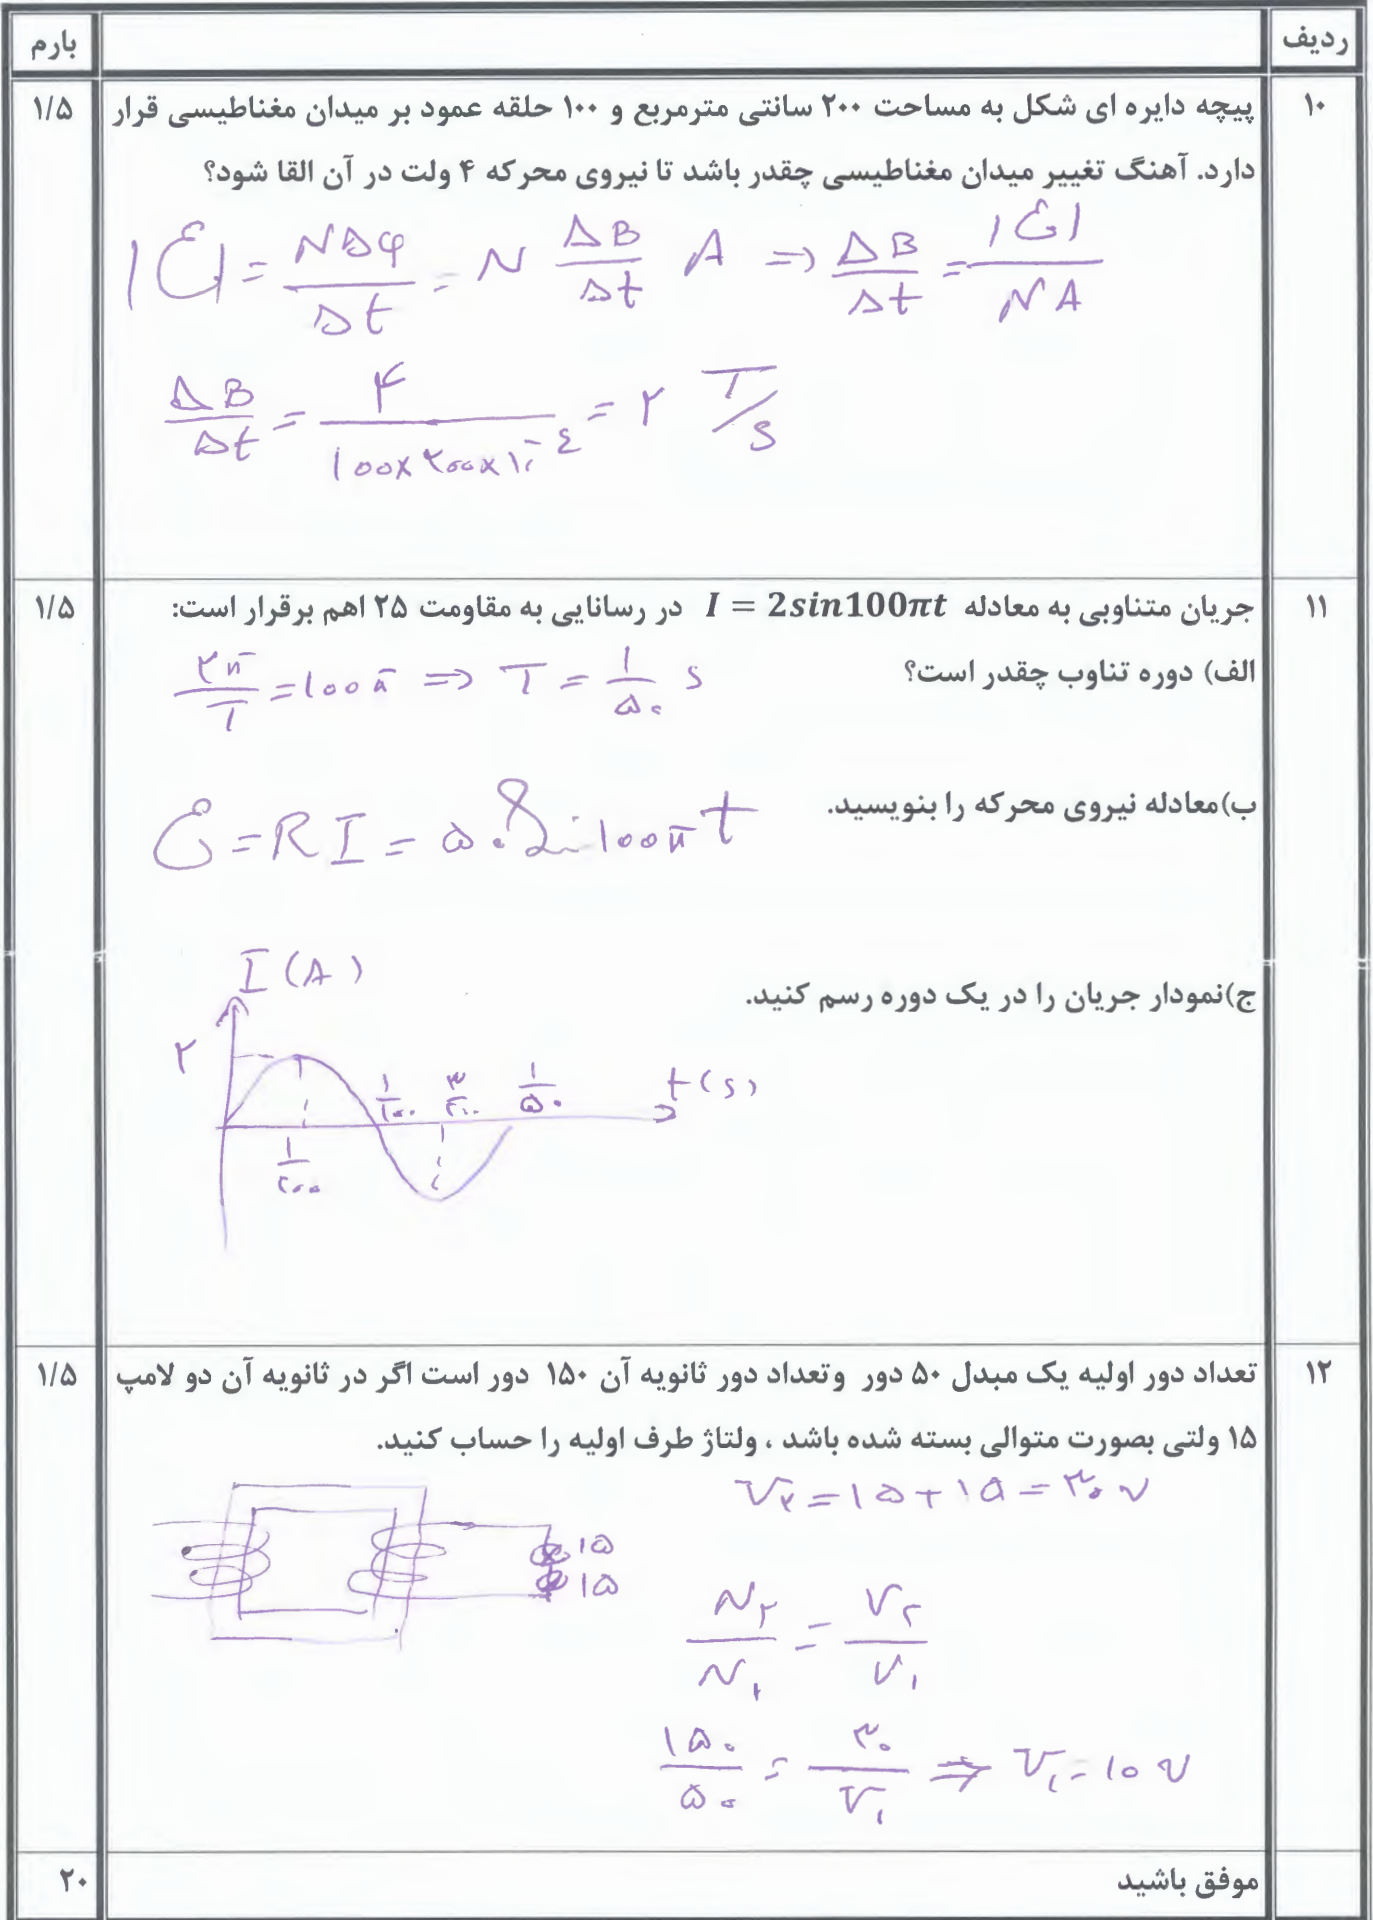 ردیف
بارم
۱۰
پیچه دایره ای شکل به مساحت ۲۰۰ سانتی مترمربع و ۱۰۰ حلقه عمود بر میدان مغناطیسی قرار
۱/۵
دارد. آهنگ تغییر میدان مغناطیسی چقدر باشد تا نیروی محرکه ۴ ولت در آن القا شود؟
|ε| = NΔφ/Δt = N ΔB/Δt A ⇒ ΔB/Δt = |ε|/NA
ΔB/Δt = ۴/(۱۰۰×۲۰۰×۱۰^-۴) = ۲ T/s
۱۱
جریان متناوبی به معادله I = 2sin100πt در رسانایی به مقاومت ۲۵ اهم برقرار است:
۱/۵
الف) دوره تناوب چقدر است؟
۲π/T = ۱۰۰π ⇒ T = ۱/۵۰ s
ب)معادله نیروی محرکه را بنویسید.
ε = RI = ۵۰ Sin ۱۰۰πt
ج)نمودار جریان را در یک دوره رسم کنید.
I (A)
۲
۱/۱۰۰ ۳/۲۰۰ ۱/۵۰ t(s)
۱/۲۰۰
۱۲
تعداد دور اولیه یک مبدل ۵۰ دور وتعداد دور ثانویه آن ۱۵۰ دور است اگر در ثانویه آن دو لامپ
۱/۵
۱۵ ولتی بصورت متوالی بسته شده باشد ، ولتاژ طرف اولیه را حساب کنید.
V۲ = ۱۵ + ۱۵ = ۳۰ v
۱۵
۱۵
N۲/N۱ = V۲/V۱
۱۵۰/۵۰ = ۳۰/V۱ ⇒ V۱ = ۱۰ v
موفق باشید
۲۰